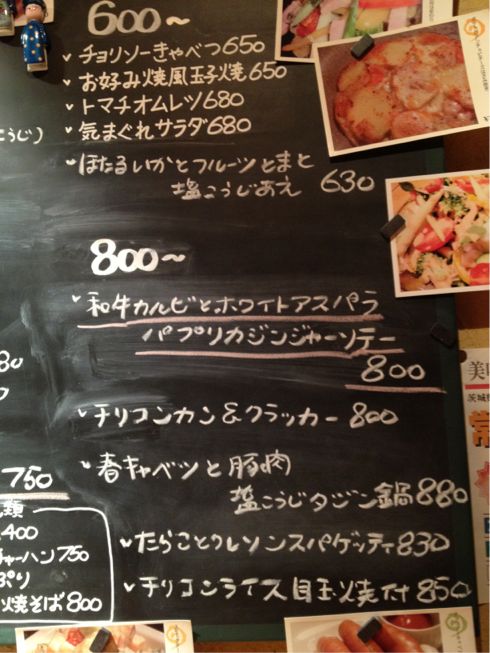 600～
チョリソーきゃべつ650
お好み焼風玉子焼650
トマチオムレツ680
気まぐれサラダ680
こうじ)
ほたるいかとフルーツとまと
塩こうじあえ 630
800～
和牛カルビとホワイトアスパラ
パプリカジンジャーソテー
800
80
0
チリコンカン&クラッカー 800
春キャベツと豚肉
塩こうじタジン鍋 880
750
類
400
チャーハン750
ぷり
焼そば800
たらことクレソンスパゲッティ830
チリコンライス目玉焼付850
茨城